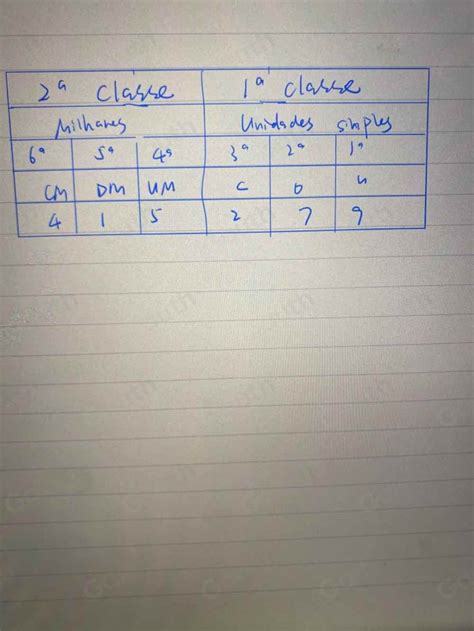 2ª classe 1ª classe
Milhares Unidades simples
6ª 5ª 4ª 3ª 2ª 1ª
CM DM UM C D u
4 1 5 2 7 9